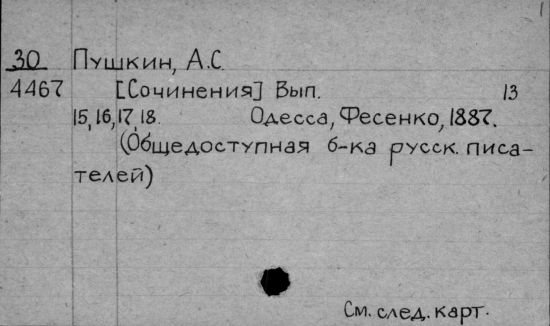 1
30 Пушкин, А.С.
4467 [Сочинения] Вып. 13
15, 16, 17, 18. Одесса, Фесенко, 1887.
(Общедоступная б-ка русск. писа-
телей)
См. след. карт.